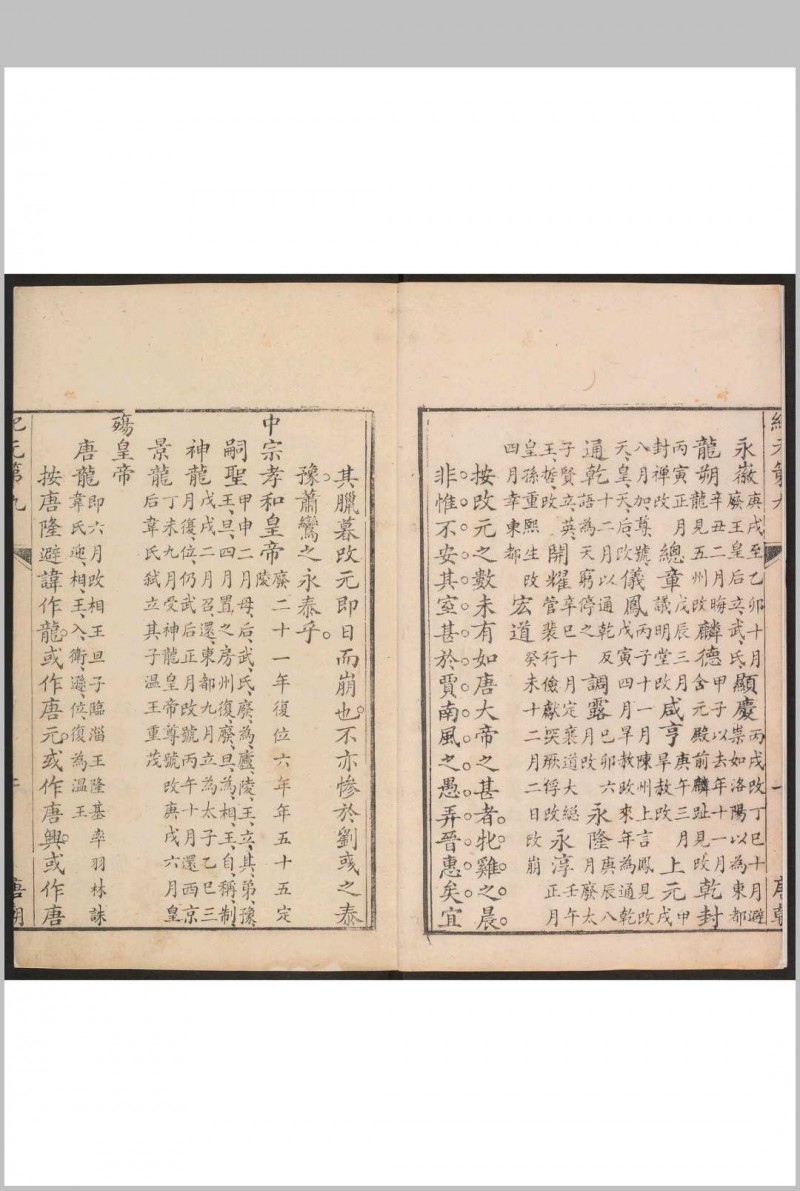 紀元第九 一 唐朝
永徽庚戌至乙卯十月廢王皇后立武氏顯慶丙戌改丁巳十月避祟如洛陽以為東都
龍朔辛丑二月晦龍見五州改麟德甲子以去年十一月含元殿前麟趾見改乾封
丙寅正月封禪改總章戊辰三月議明堂改咸亨庚午三月旱赦改上元甲戌
八月加尊號天皇天后改儀鳳丙子十一月陳州上言鳳見改戊寅四月早赦改來年為通乾
通乾十二月以通乾反語為天窮停之調露己卯六月改永隆庚辰八月廢太
子賢立英王哲改開耀辛巳十月定襄道大總管裴行儉獻突厥俘改永淳壬午正月
皇孫重熙生改四月幸東都宏道癸未十二月二日改崩
按改元之數未有如唐大帝之甚者牝雞之晨
非惟不安其室甚於賈南風之愚弄晉惠矣宜
其臘暮改元即日而崩也不亦慘於劉彧之泰
豫蕭鸞之永泰乎
中宗孝和皇帝廢二十一年復位六年年五十五定陵
嗣聖甲申二月母后武氏廢為廬陵王立其弟豫王旦四月置之房州復廢旦為相王自稱制
神龍戊戌二月召還東都九月立為太子乙巳三月復位仍武后正月改號丙午十月還西京
景龍丁未九月受神龍皇帝尊號改庚戌六月皇后韋氏弒立其子溫王重茂
殤皇帝
唐龍即六月改相王旦子臨淄王隆基率羽林誅韋氏迎相王入衛遜位復為溫王
按唐隆避諱作龍或作唐元或作唐興或作唐
紀元第九 唐朝